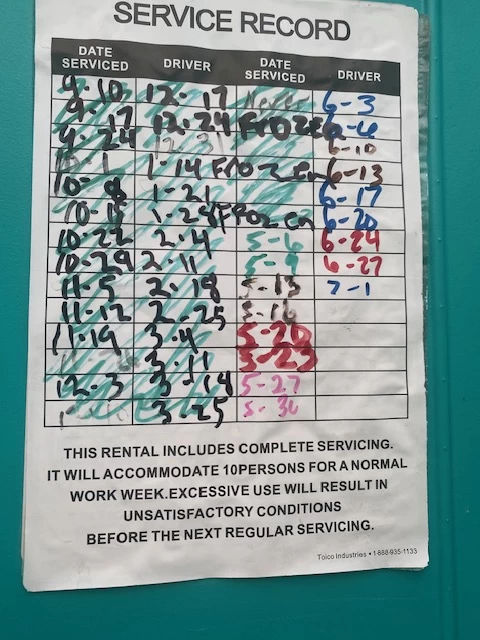 SERVICE RECORD
DATE SERVICED DRIVER DATE SERVICED DRIVER
9-10 12-17 6-3
9-17 12-24 FROZE 6-6
9-24 12-31 6-10
10-1 1-14 FROZEN 6-13
10-8 1-21 6-17
10-15 1-28 FROZEN 6-20
10-22 2-4 5-6 6-24
10-29 2-11 5-9 6-27
11-5 2-18 5-13 7-1
11-12 2-25 5-16
11-19 3-4 5-20
3-11 5-23
12-3 3-18 5-27
3-25 5-30
THIS RENTAL INCLUDES COMPLETE SERVICING.
IT WILL ACCOMMODATE 10PERSONS FOR A NORMAL
WORK WEEK.EXCESSIVE USE WILL RESULT IN
UNSATISFACTORY CONDITIONS
BEFORE THE NEXT REGULAR SERVICING.
Tolco Industries • 1-888-935-1133